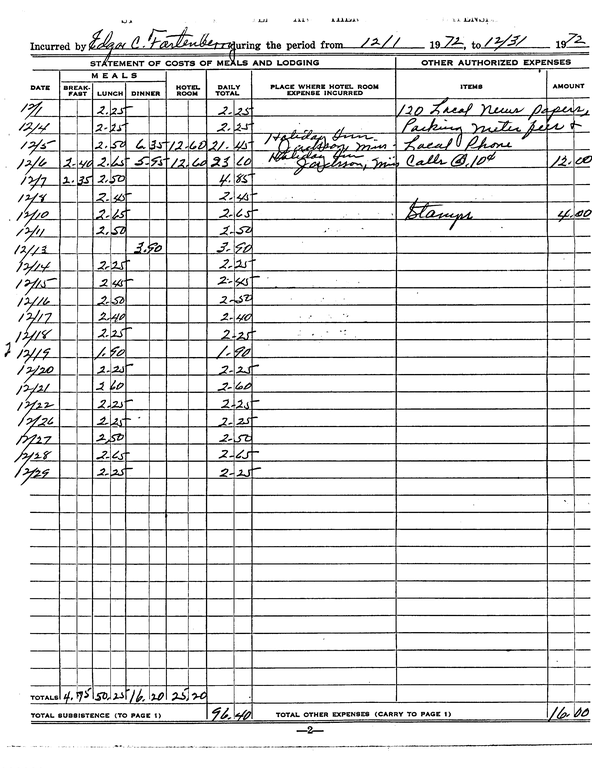 Incurred by Edgar C. Fortenberry during the period from 12/1 1972, to 12/31 1972
STATEMENT OF COSTS OF MEALS AND LODGING OTHER AUTHORIZED EXPENSES
MEALS
DATE BREAK-FAST LUNCH DINNER HOTEL ROOM DAILY TOTAL PLACE WHERE HOTEL ROOM EXPENSE INCURRED ITEMS AMOUNT
12/1 2.25 2.25 120 Local News papers,
12/4 2.25 2.25 Parking meter fees &
12/5 2.50 6.35 12.60 21.45 Holiday Inn Jackson, Miss. Local Phone
12/6 2.40 2.65 5.95 12.60 23.60 Holiday Inn Jackson, Miss Calls @ .10¢ 12.00
12/7 2.35 2.50 4.85
12/8 2.45 2.45
12/10 2.65 2.65 Stamps 4.00
12/11 2.50 2.50
12/13 3.90 3.90
12/14 2.25 2.25
12/15 2.45 2.45
12/16 2.50 2.50
12/17 2.40 2.40
12/18 2.25 2.25
12/19 1.90 1.90
12/20 2.25 2.25
12/21 2.60 2.60
12/22 2.25 2.25
12/26 2.25 2.25
12/27 2.50 2.50
12/28 2.65 2.65
12/29 2.25 2.25
TOTALS 4.75 50.25 16.20 25.20
TOTAL SUBSISTENCE (TO PAGE 1) 96.40 TOTAL OTHER EXPENSES (CARRY TO PAGE 1) 16.00
—2—